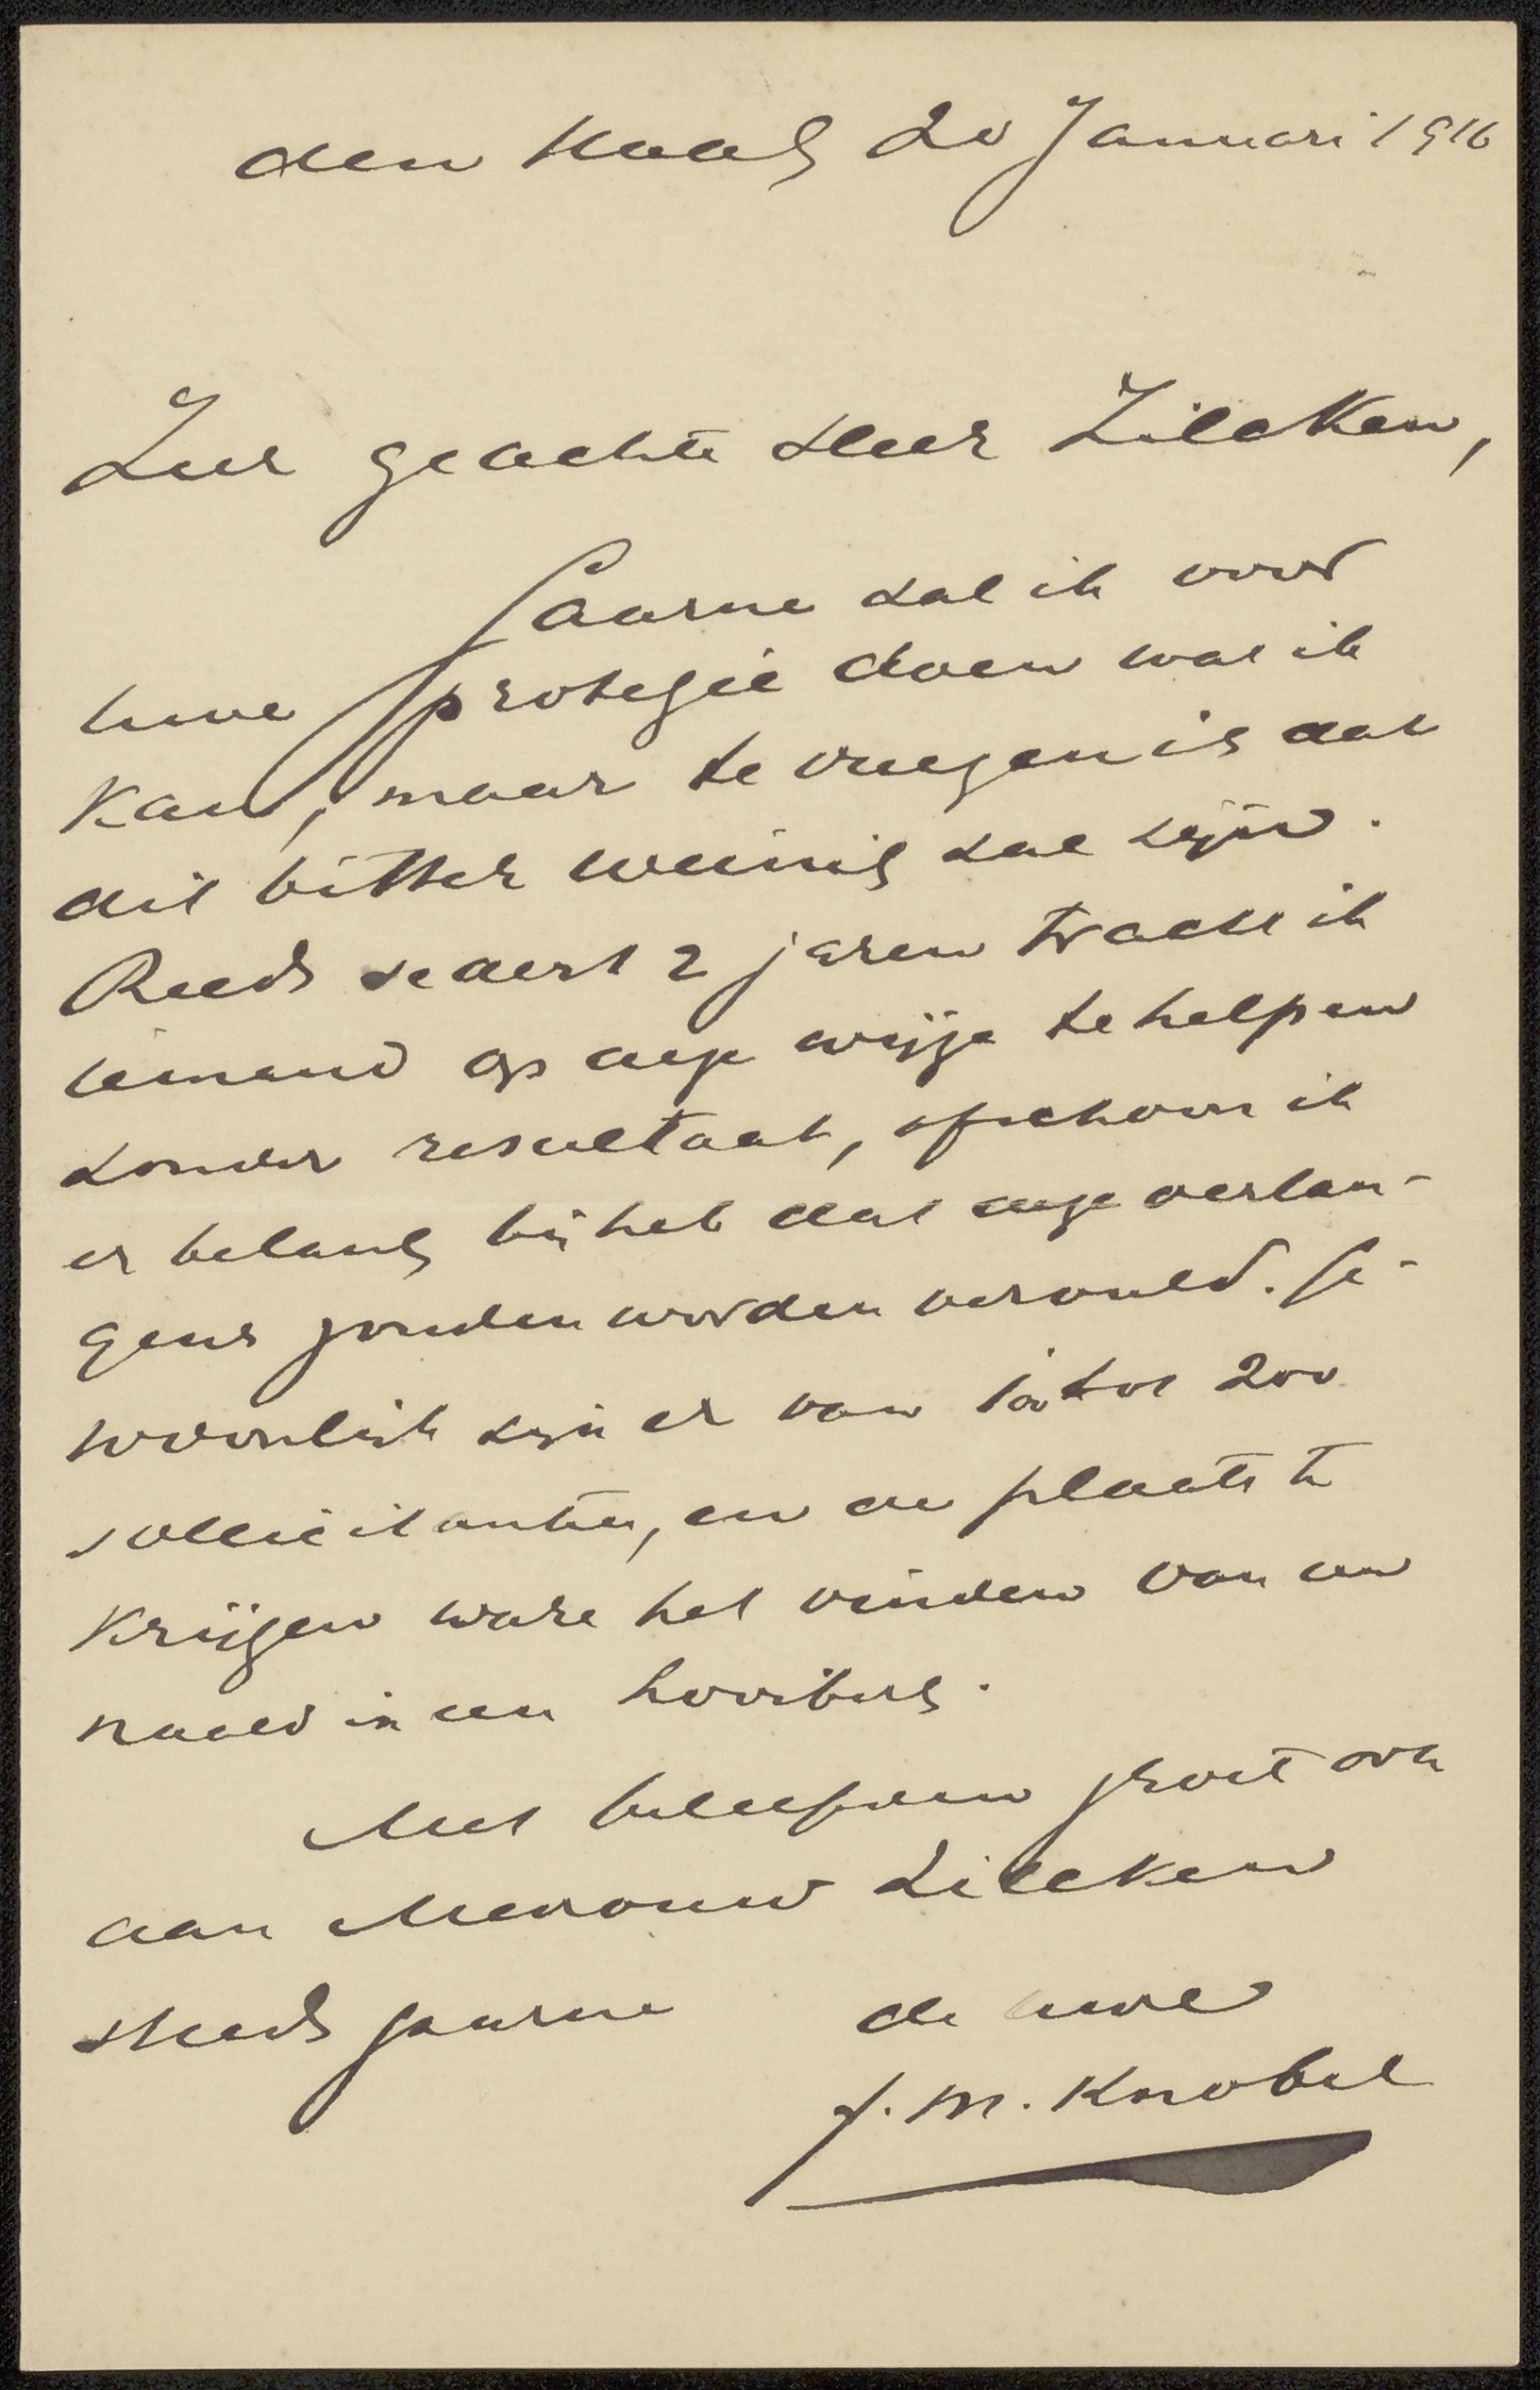 den Haag 20 Januari 1916
Zeer geachte Heer Zilcken,
Gaarne zal ik voor
Uwe protegée doen wat ik
kan, maar te vreezen is dat
dit bitter weinig zal zijn.
Reeds sedert 2 jaren tracht ik
iemand op deze wijze te helpen
zonder resultaat, ofschoon ik
er belang bij heb dat deze verlan-
gens zouden worden vervuld. Ge-
woonlijk zijn er van 100 tot 200
sollicitanten, en de plaats te
krijgen ware het vinden van een
naald in een hooiberg.
Met beleefden groet ook
aan Mevrouw Zilcken
steeds gaarne de uwe
F. M. Knobel